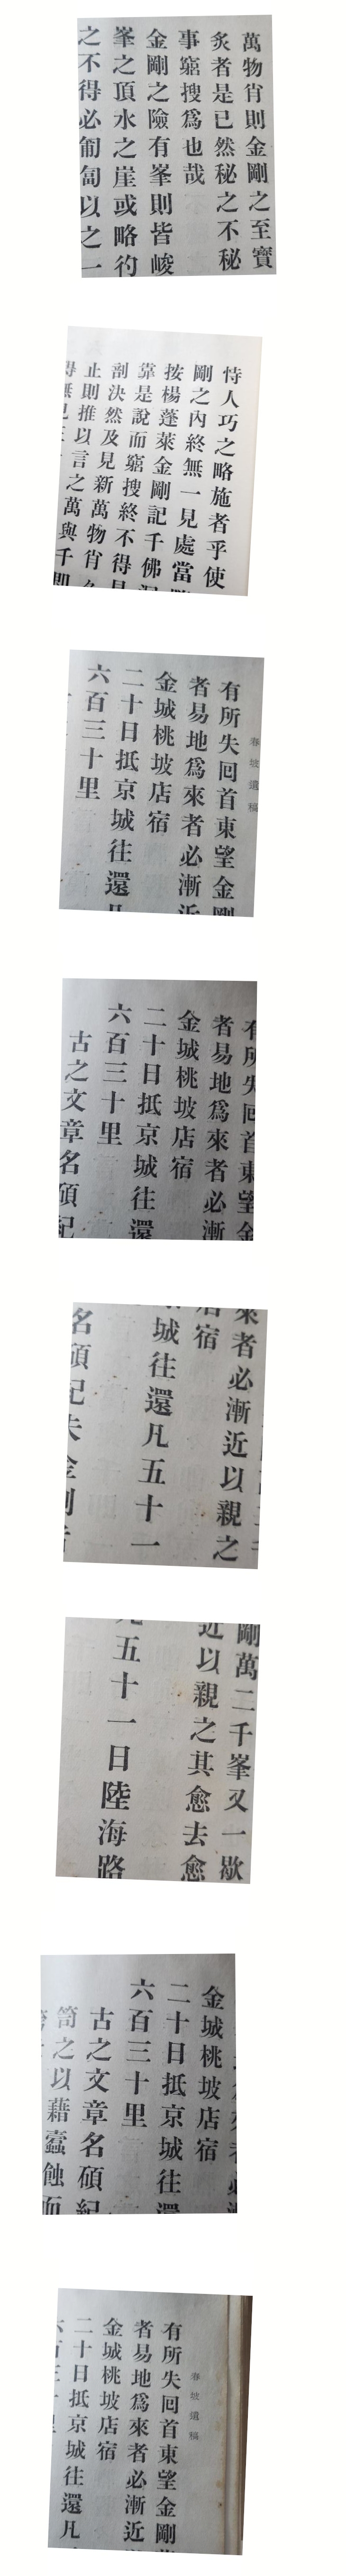 萬物肖則金剛之至寶
炙者是已然秘之不秘
事窮搜爲也哉
金剛之險有峯則皆峻
峯之頂水之崖或略彴
之不得必匍匐以之一
恃人巧之略施者乎使
剛之內終無一見處當
按楊蓬萊金剛記千佛
靠是說而窮搜終不得
剖決然及見新萬物肖
止則推以言之萬與千
有所失回首東望金剛
者易地爲來者必漸近
金城桃坡店宿
二十日抵京城往還凡
六百三十里
春坡遺稿
有所失回首東望金
者易地爲來者必漸
金城桃坡店宿
二十日抵京城往還
六百三十里
古之文章名碩紀
來者必漸近以親之
店宿
城往還凡五十一
名碩紀夫金剛
剛萬二千峯又一歇
近以親之其愈去愈
凡五十一日陸海路
金城桃坡店宿
二十日抵京城往還
六百三十里
古之文章名碩紀
笥之以藉蠹蝕而
春坡遺稿
有所失回首東望金剛
者易地爲來者必漸近
金城桃坡店宿
二十日抵京城往還凡
六百三